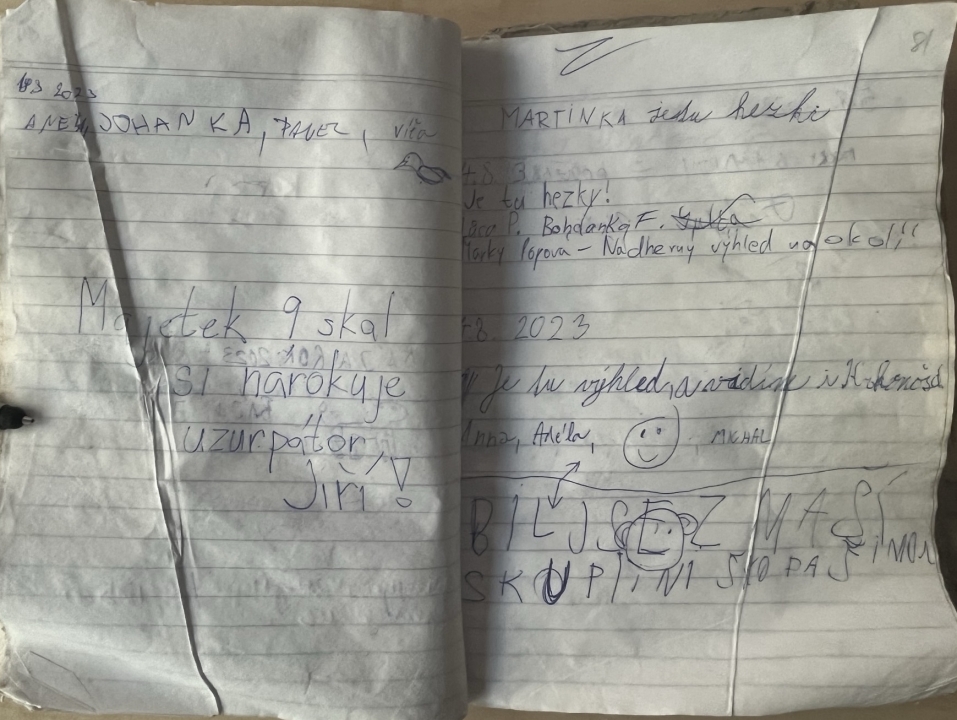 2023
JOHANKA, PAVEL, Víťa
Majetek 9 skal
si narokuje
uzurpátor,
Jiří!
81
MARTINKA jesu hezki
Je tu hezky!
P. Bohdanka F.
Popova - Nádherny výhled na okolí!!
8. 2023
Je tu výhled, a vidíme i
Anna, Anéla, MICHAL
BILJSEZ MAŠÍ
SKUPINI